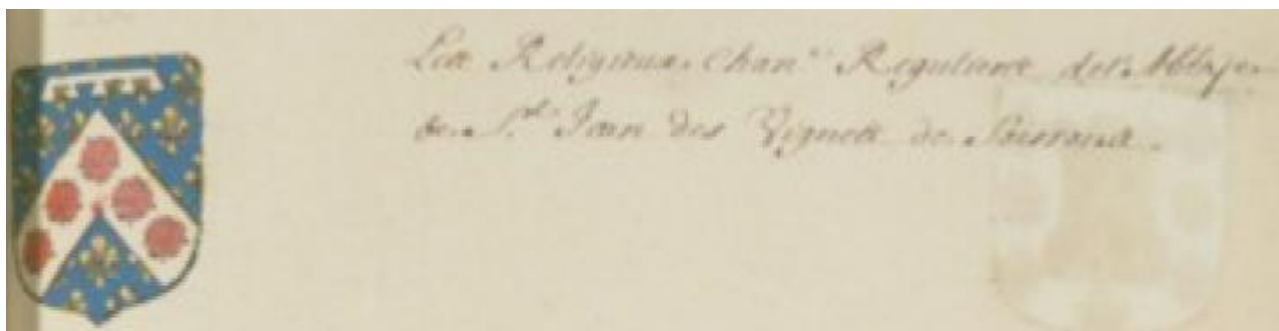 Les Religieux Chan.es Reguliers del'Abbaye
de S.t Jean des Vignes de Soissons.